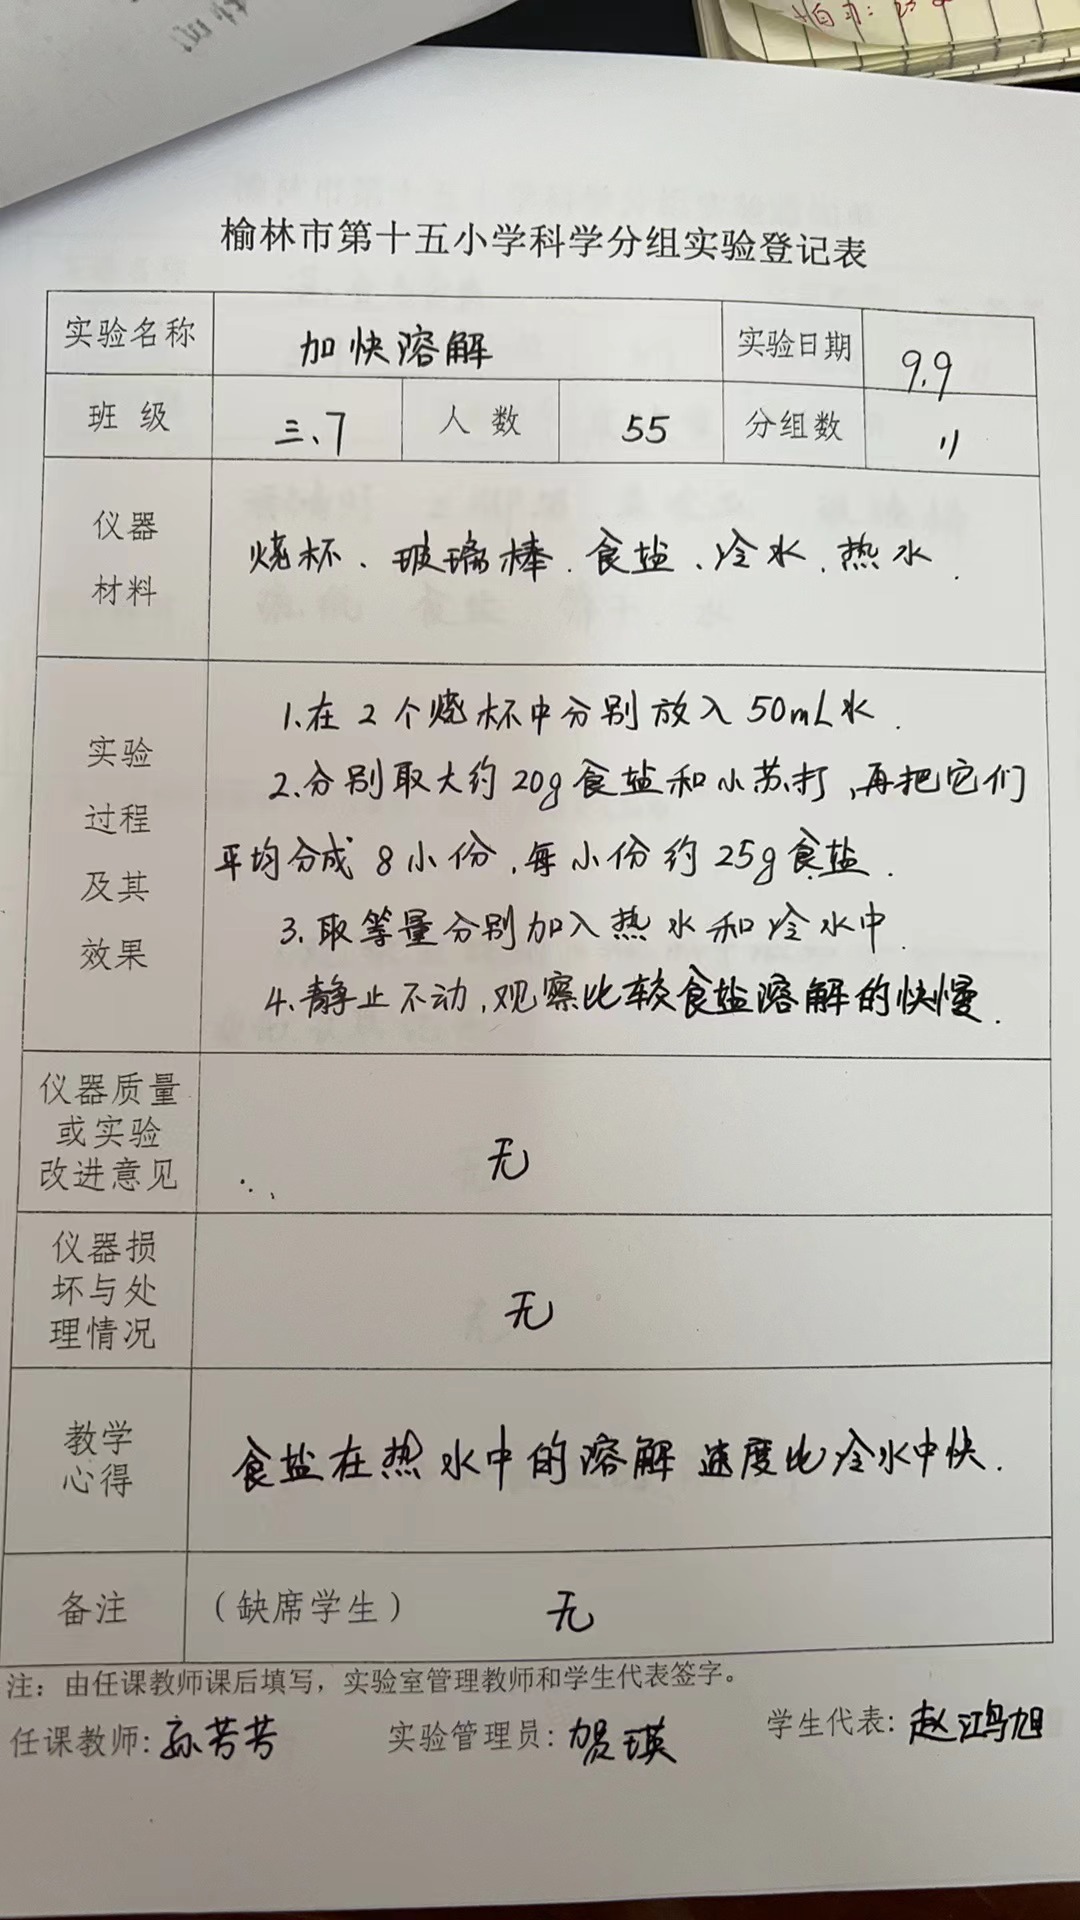 榆林市第十五小学科学分组实验登记表
实验名称 加快溶解 实验日期 9.9
班 级 三、7 人 数 55 分组数 11
仪器
材料
烧杯、玻璃棒．食盐、冷水．热水．
实验
过程
及其
效果
1.在2个烧杯中分别放入50mL水．
2.分别取大约20g食盐和小苏打,再把它们
平均分成8小份,每小份约25g食盐．
3.取等量分别加入热水和冷水中．
4.静止不动,观察比较食盐溶解的快慢．
仪器质量
或实验
改进意见
无
仪器损
坏与处
理情况
无
教学
心得
食盐在热水中的溶解速度比冷水中快．
备注 （缺席学生） 无
注：由任课教师课后填写，实验室管理教师和学生代表签字。
任课教师:孙芳芳 实验管理员:贺瑛 学生代表:赵鸿旭